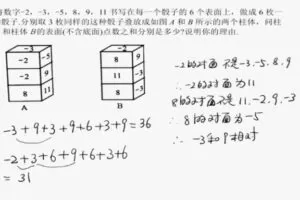 将数字-2、-3、-5、8、9、11 书写在每一个骰子的 6 个表面上,做成 6 枚一
骰子.分别取 3 枚同样的这种骰子叠放成如图 A 和 B 所示的两个柱体,问柱
和柱体 B 的表面(不含底面)点数之和分别是多少?说明你的理由.
-2
-2
-5
9
-3
8
-5
11
8
-3
A
B
-3+9+3+9+6+3+9=36
-2+3+6+9+6+3+6
=31
-2的对面不是-3.-5.8.9
∴-2的对面为11
8的对面不是11.-2.9.-3
∴8的对面为-5
∴-3和9相对